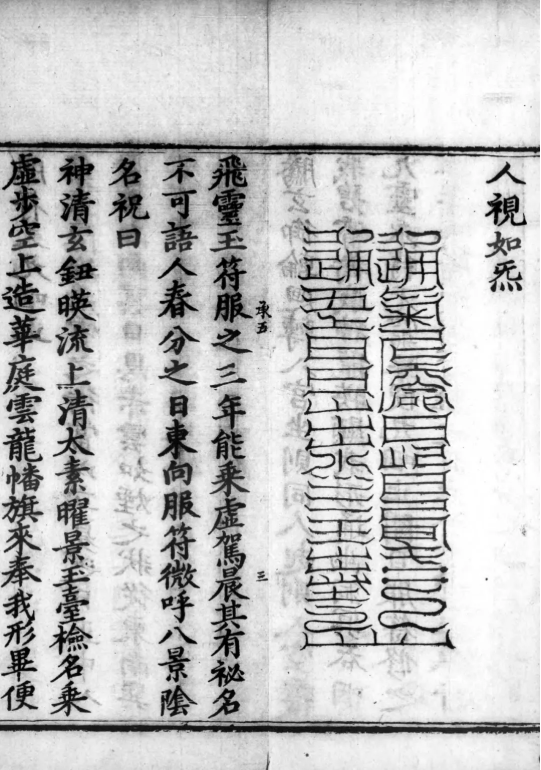 人視如炁
飛靈玉符服之三年能乘虛駕晨其有祕名
承五
三
不可語人春分之日東向服符微呼八景陰
名祝曰
神清玄鈕暎流上清太素曜景玉臺檢名乘
虛步空上造華庭雲龍幡旗來奉我形畢便